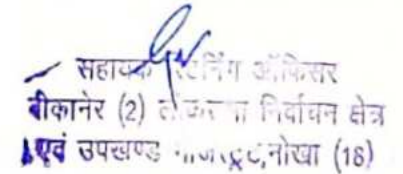 सहायक रिटर्निंग ऑफिसर
बीकानेर (2) लोकसभा निर्वाचन क्षेत्र
एवं उपखण्ड मजिस्ट्रेट,नोखा (18)